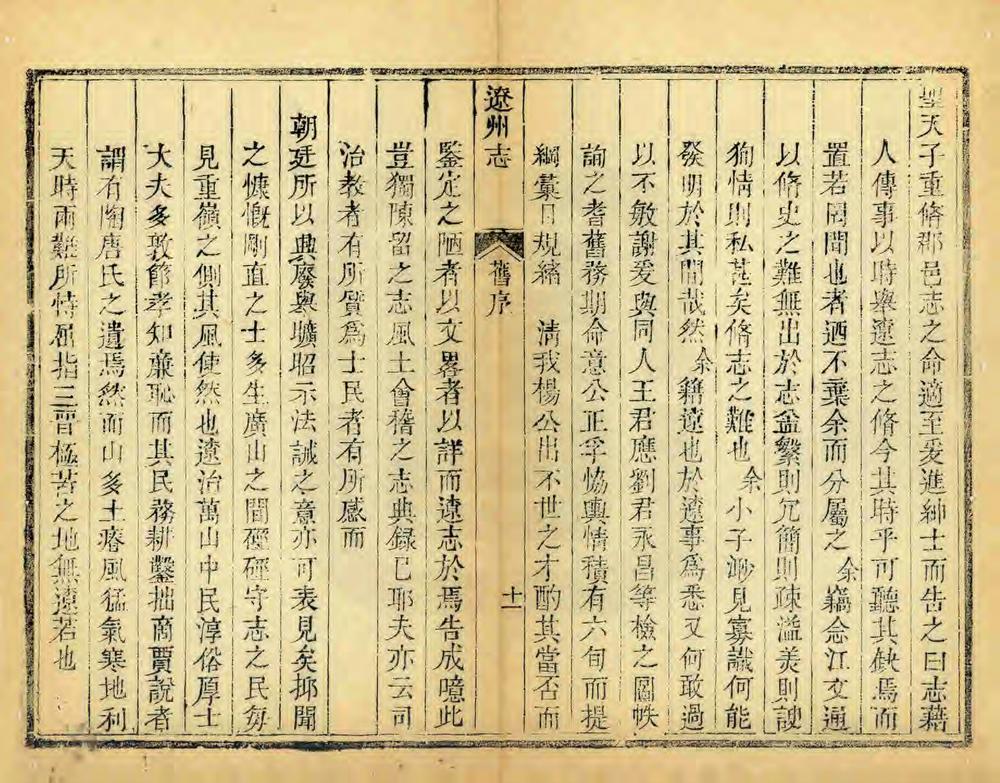 聖天子重脩郡邑志之命適至爰進紳士而告之曰志藉
人傳事以時舉遼志之脩今其時乎可聽其缺焉而
置若罔聞也者迺不棄余而分屬之余竊念江文通
以脩史之難無出於志葢繁則冗簡則疎溢美則諛
狥情則私甚矣脩志之難也余小子渺見寡識何能
發明於其間哉然余籍遼也於遼事爲悉又何敢過
以不敏謝爰與同人王君應劉君永昌等檢之圖帙
詢之耆舊務期命意公正孚恊輿情積有六旬而提
綱彚目規縮 清我楊公出不世之才酌其當否而
遼州志 舊序 十一
鑒定之陋者以文畧者以詳而遼志於焉告成噫此
豈獨陳留之志風土會稽之志典錄已耶夫亦云司
治教者有所質爲士民者有所感而
朝廷所以興廢舉曠昭示法誡之意亦可表見矣抑聞
之慷慨剛直之士多生廣山之間硜硜守志之民每
見重嶺之側其風使然也遼治萬山中民淳俗厚士
大夫多敦節孝知亷恥而其民務耕鑿拙商賈說者
謂有陶唐氏之遺焉然而山多土瘠風猛氣寒地利
天時兩難所恃屈指三晉極苦之地無遼若也